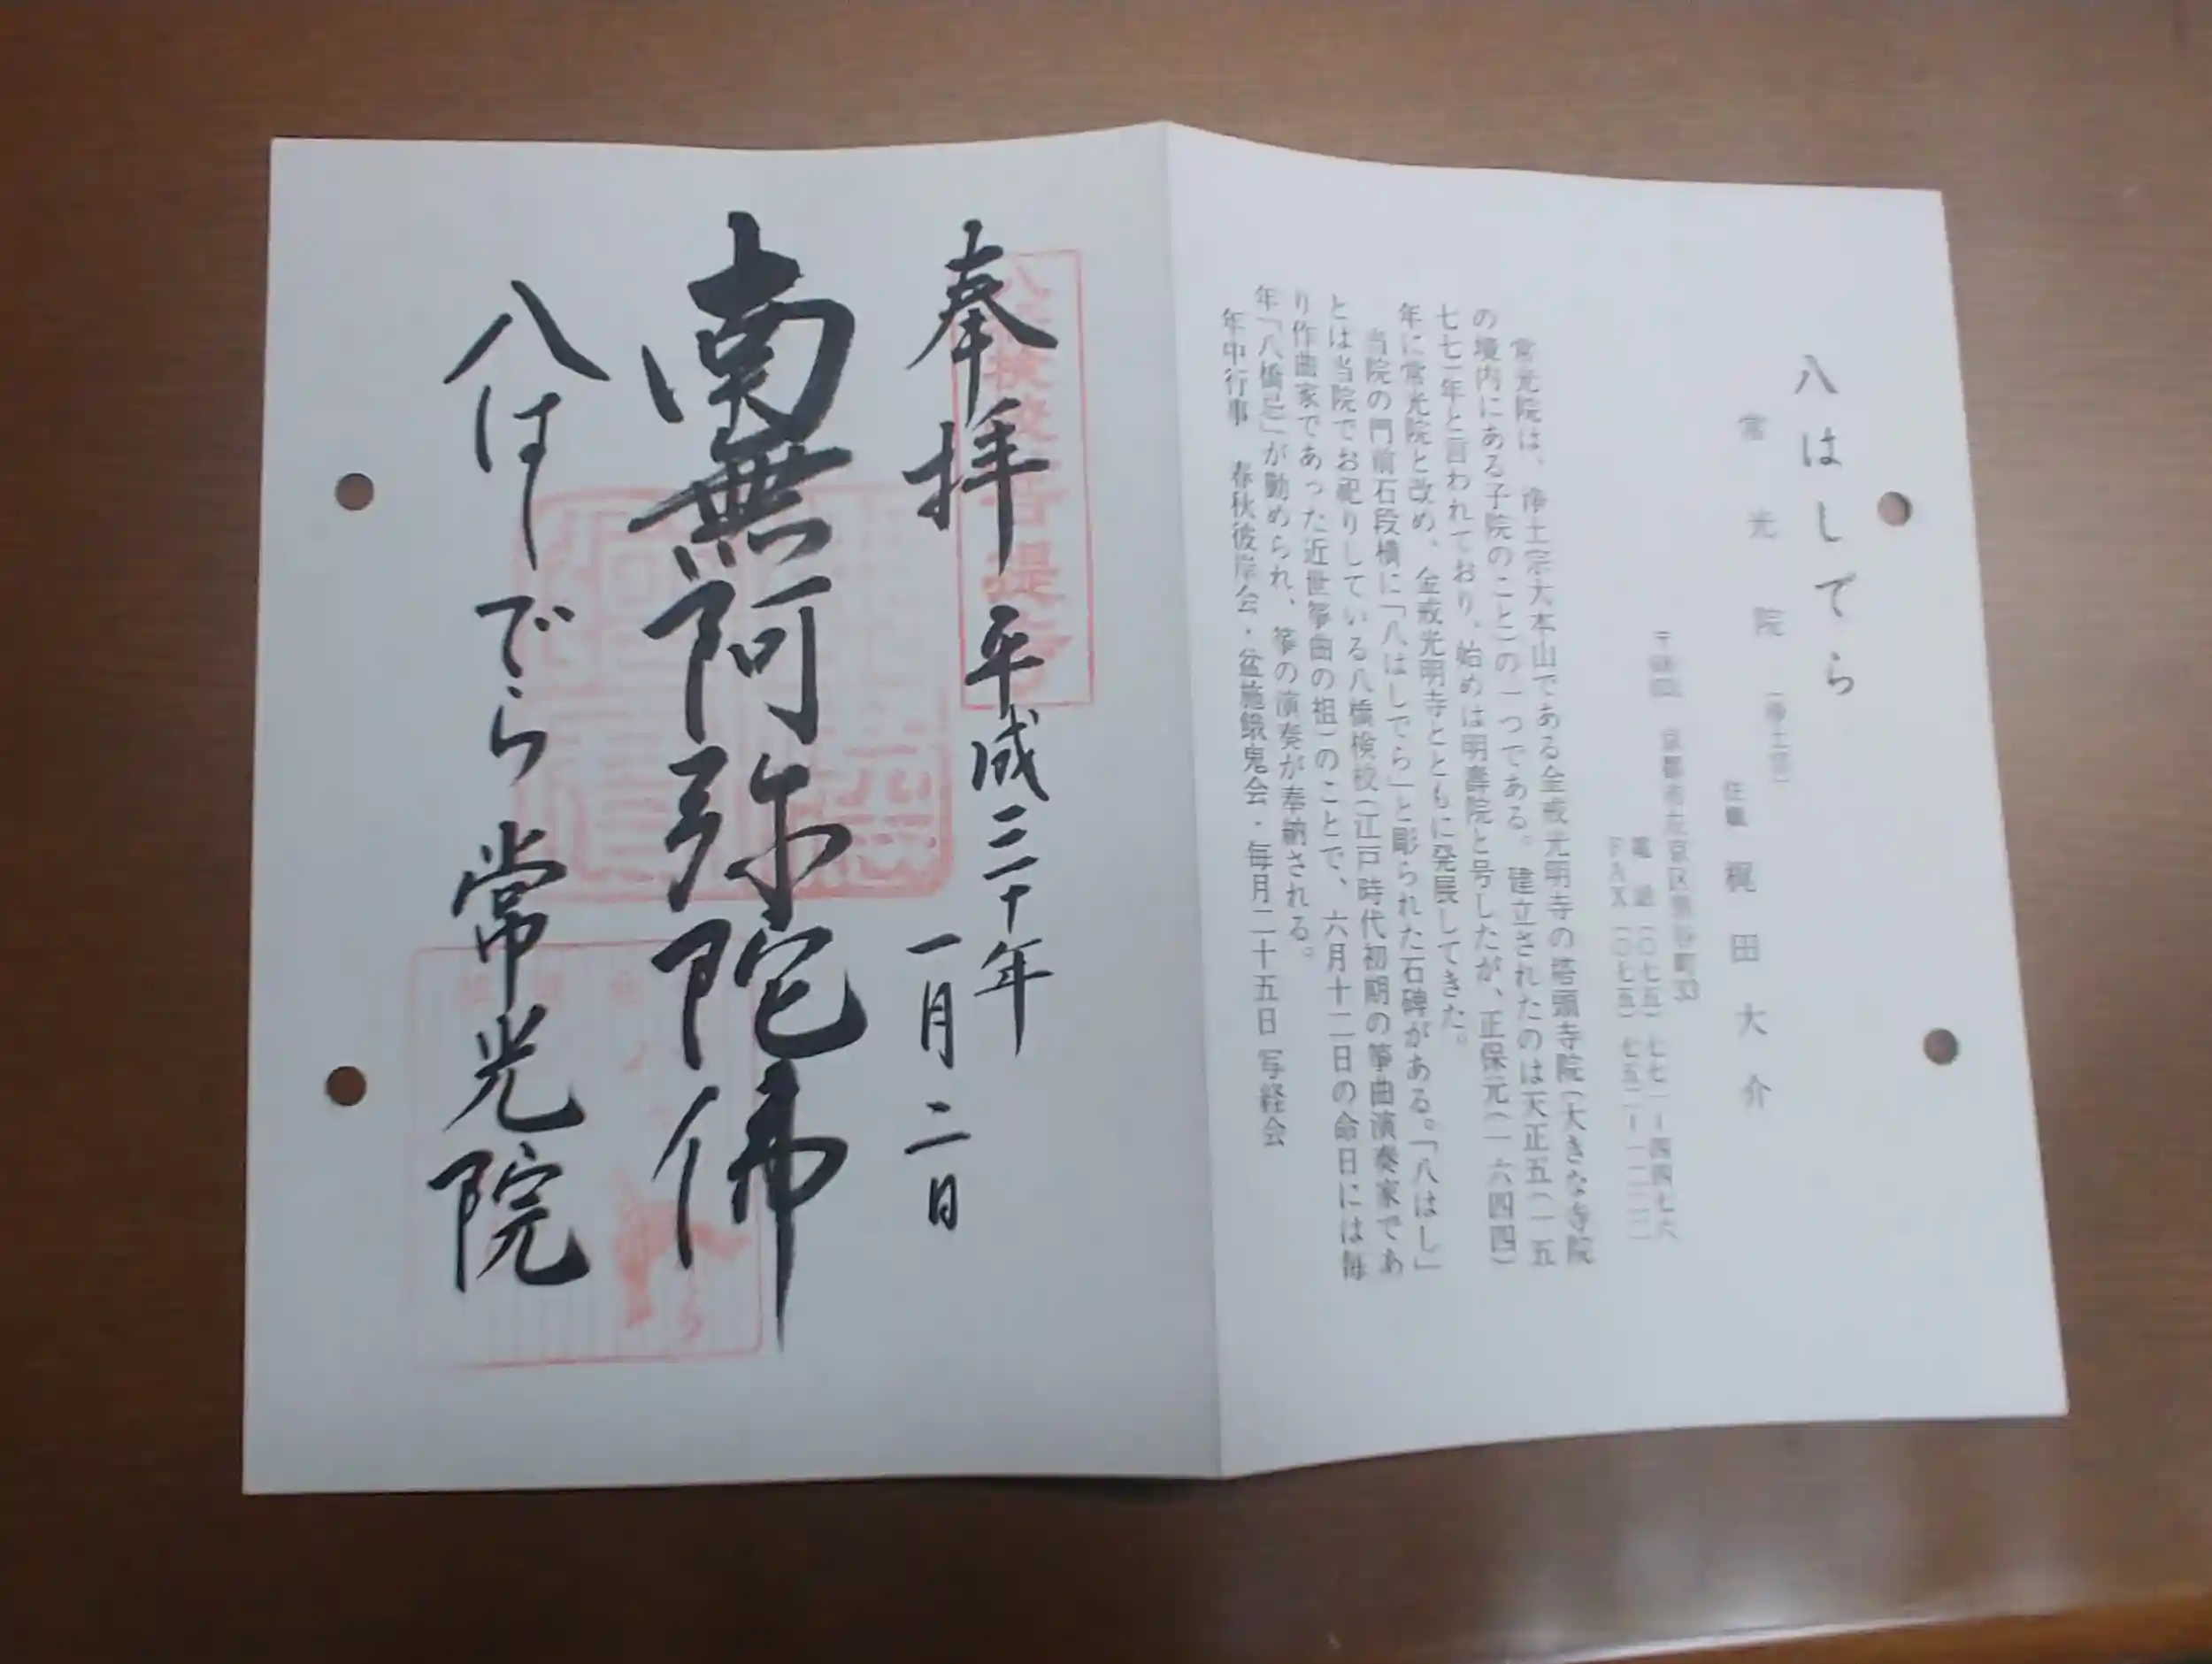 八はしでら
常光院（浄土宗）
住職 梶田大介
京都市左京区黒谷町33
電話（〇七五）七七一ー四四七六
FAX（〇七五）七五二ー一二一一
常光院は、浄土宗大本山である金戒光明寺の塔頭寺院（大きな寺院
の境内にある子院のこと）の一つである。建立されたのは天正五（一五
七七）年と言われており、始めは明壽院と号したが、正保元（一六四四）
年に常光院と改め、金戒光明寺とともに発展してきた。
当院の門前石段横に「八はしでら」と彫られた石碑がある。「八はし」
とは当院でお祀りしている八橋検校（江戸時代初期の箏曲演奏家であ
り作曲家であった近世箏曲の祖）のことで、六月十二日の命日には毎
年「八橋忌」が勤められ、箏の演奏が奉納される。
年中行事 春秋彼岸会・盆施餓鬼会・毎月二十五日 写経会
奉拝 平成三十年
一月二日
南無阿弥陀佛
八はしでら 常光院